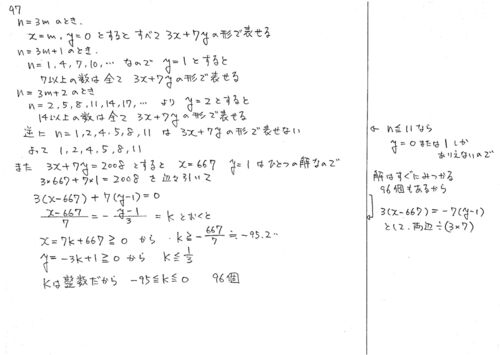 97
n=3mのとき.
x=m, y=0 とするとすべて 3x+7yの形で表せる
n=3m+1のとき.
n=1,4,7,10,… なので y=1とすると
7以上の数は全て 3x+7yの形で表せる
n=3m+2のとき
n=2,5,8,11,14,17,… より y=2とすると
14以上の数は全て 3x+7yの形で表せる
逆に n=1,2,4,5,8,11 は 3x+7yの形で表せない
よって 1,2,4,5,8,11
また 3x+7y=2008とすると x=667 y=1はひとつの解なので
3×667+7×1=2008 を辺々引いて
3(x-667)+7(y-1)=0
(x-667)/7 = -(y-1)/3 = k とおくと
x=7k+667≧0 から k≧-667/7≒-95.2…
y=-3k+1≧0 から k≦1/3
kは整数だから -95≦k≦0 96個
← n≦11なら
y=0または1しか
ありえないので
解はすぐにみつかる
96個もあるから
3(x-667)=-7(y-1)
として、両辺÷(3×7)